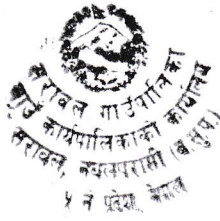 सरावल गाउँपालिका
गाउँ कार्यपालिकाको कार्यालय
सरावल, नवलपरासी (ब.सु.प.)
५ नं प्रदेश, नेपाल